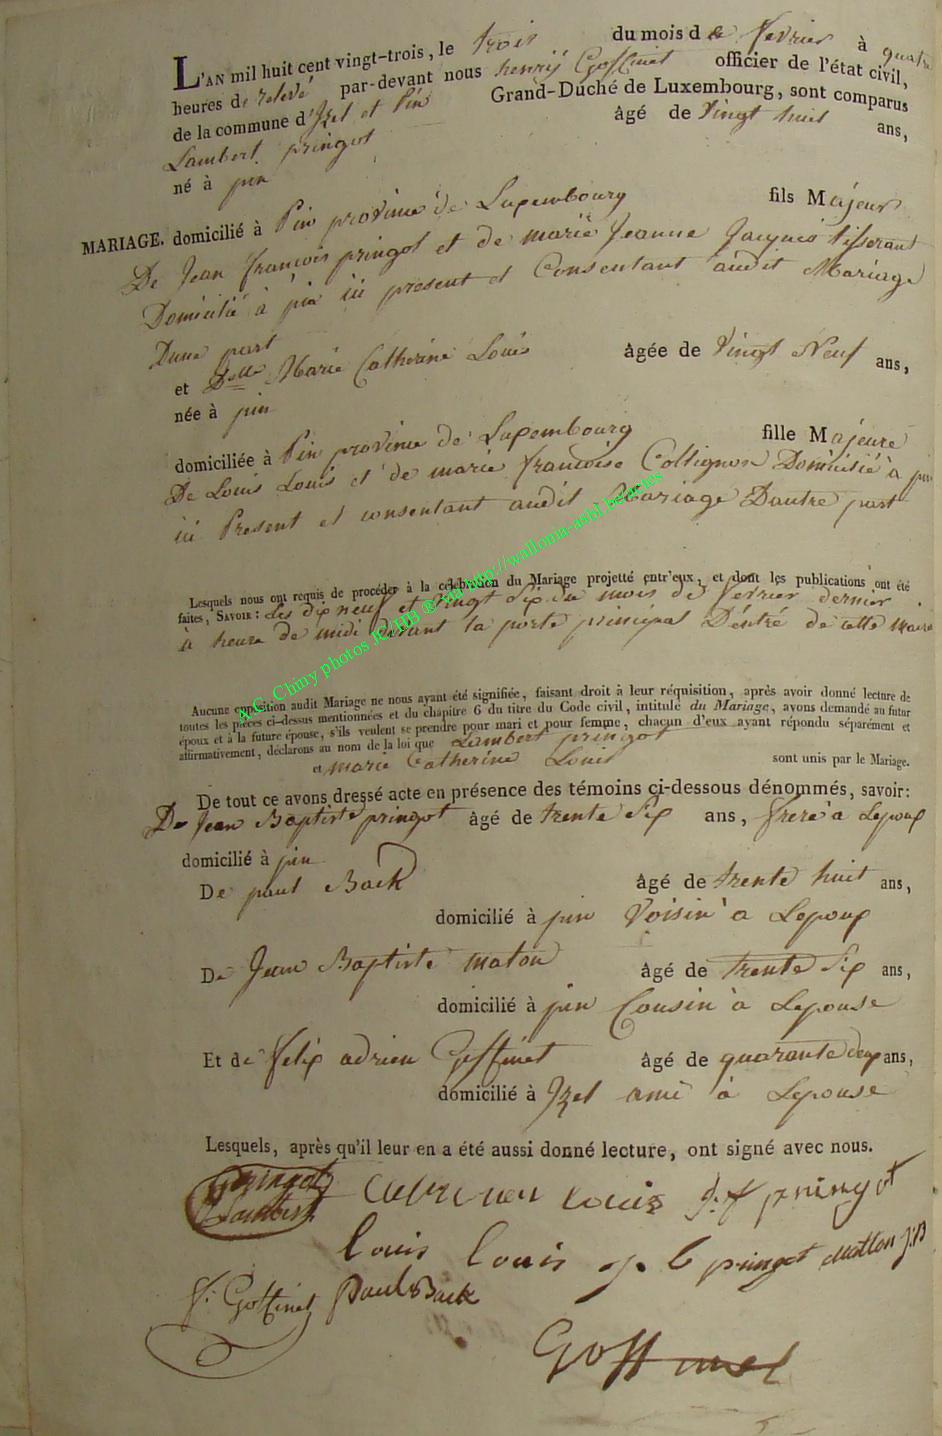 L'AN mil huit cent vingt-trois, le trois du mois de fevrier à quatre
heures de relevé par-devant nous henrij Goffinet officier de l'état civil,
de la commune d'Izel et Pin Grand-Duché de Luxembourg, sont comparus
Lambert pringot âgé de Vingt huit ans,
né à pin
MARIAGE. domicilié à Pin province de Luxembourg fils Majeur
De Jean francois pringot et de marie Jeanne Jacques tisserant
Domicilié à pin ici present et Consentant audit Mariage
Dune part
et Delle Marie Catherine Louis âgée de Vingt Neuf ans,
née à pin
domiciliée à Pin province de Luxembourg fille Majeure
De Louis Louis et de marie francoise Collignon Domicilié à pin
ici Present et consentant audit Mariage Dautre part
Lesquels nous ont requis de procéder à la célébration du Mariage projetté entr'eux, et dont les publications ont été
faites, SAVOIR : Les dix neuf et vingt Six du mois de fevrier dernier
à heure de midi devant la porte principal Dentré de cette
Aucune opposition audit Mariage ne nous ayant été signifiée, faisant droit à leur réquisition, après avoir donné lecture de
toutes les pièces ci-dessus mentionnées et du chapitre 6 du titre du Code civil, intitulé du Mariage, avons demandé au futur
époux et à la future épouse, s'ils veulent se prendre pour mari et pour femme, chacun d'eux ayant répondu séparément et
affirmativement, déclarons au nom de la loi que Lambert pringot
et marie Catherine Louis sont unis par le Mariage.
De tout ce avons dressé acte en présence des témoins ci-dessous dénommés, savoir:
De Jean Baptiste pringot âgé de trente Six ans, frere à Lepoux
domicilié à pin
De paul Back âgé de trente huit ans,
domicilié à pin Voisin à Lepoux
De Jean Baptiste maton âgé de trente Six ans,
domicilié à pin Cousin à Lepouse
Et de felix adrien Goffinet âgé de quarante deux ans,
domicilié à Izel ami à Lepouse
Lesquels, après qu'il leur en a été aussi donné lecture, ont signé avec nous.
pringot louis j: f pringot
Lambert
louis louis j. b pringot Matton J:B
f: Goffinet Paul Back
Goffinet